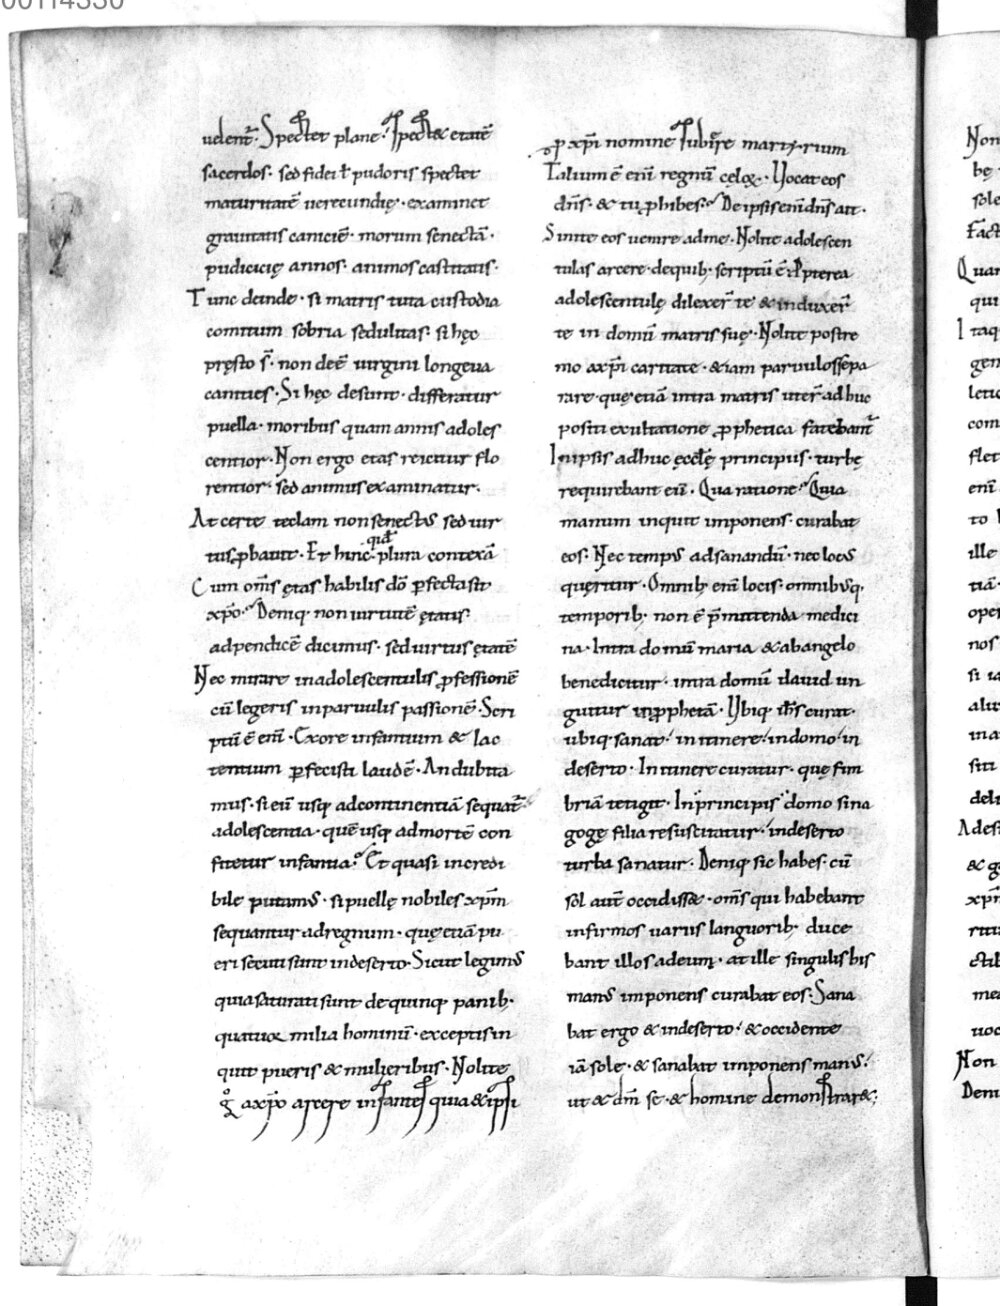 00114330
udent᷑. Spectet plane. Spect& etatē
sacerdos. sed fidei ł pudoris spectet
maturitatē uerecundię. examinet
grauitatis caniciē. morum senectā.
pudicicię annos. animos castitatis.
Tunc deinde. si matris tuta custodia
comitum sobria sedulitas. si hęc
pręsto s̄. non deē uirgini longeua
canities. Si hęc desunt. differatur
puella. moribus quam annis adoles
centior. Non ergo etas reicitur flo
rentior. sed animus examinatur.
At certe teclam non senectus sed uir
tus ꝓbauit. Et hinc quid plura contexā
Cum om̄s ętas habilis dō ꝑfecta sit
xp̄o. Deniq. non uirtutē ętatis
adpendicē dicimus. sed uirtus ętatē
Nec mirare in adolescentulis ꝓfessionē
cū legeris in paruulis passionē. Scri
ptū ē enī. Ex ore infantium & lac
tentium ꝑfecisti laudē. An dubita
mus. si eū usq; ad continentiā sequat᷑
adolescentia. quē usq; ad mortē con
fitetur infantia. Et quasi incredi
bile putamus. si puellę nobiles xp̄m
sequantur ad regnum. quę etiā pu
eri secuti sunt in deserto. Sicut legimus
quia saturati sunt de quinq; panib;.
quatuor milia hominū. exceptis in
quit pueris & mulieribus. Nolite
g̊ a xp̄o arcere infantes quia & ipsi
ꝓ xp̄i nomine subire martyrium
Talium ē enī regnū cęlorꝝ. Uocat eos
dn̄s. & tu ꝓhibes. De ipsis enī dn̄s ait.
Sinite eos uenire ad me. Nolite adolescen
tulas arcere. de quib; scriptū ē. Ꝓpterea
adolescentulę dilexer̄ te & induxer̄
te in domū matris suę. Nolite postre
mo a xp̄i caritate. &iam paruulos sepa
rare. quę etiā intra matris uter̄ ad huc
positi exultatione ꝓphetica fatebant᷑
In ipsis adhuc ęcclę principiis. turbę
requirebant eū. Qua ratione. Quia
manum inquit imponens. curabat
eos. Nec tempus ad sanandū. nec locus
quęritur. Omnib; enī locis. omnibusq;
temporib; non ē p̄mittenda medici
na. Intra domū maria & ab angelo
benedicitur. intra domū dauid un
guitur in ꝓphetā. Ubiq; ih̄s curat.
ubiq; sanat. in itinere. in domo. in
deserto. In itinere curatur. quę fim
briā tetigit. In principis domo sina
gogę filia resuscitatur. in deserto
turba sanatur. Deniq; sic habes. cū
sol aut̄ occidiss&. om̄s qui habebant
infirmos uariis languorib;. duce
bant illos ad eum. at ille singulis his
manus imponens curabat eos. Sana
bat ergo & in deserto. & occidente
iā sole. & sanabat imponens manus.
ut & dm̄ se. & homine demonstrar&;